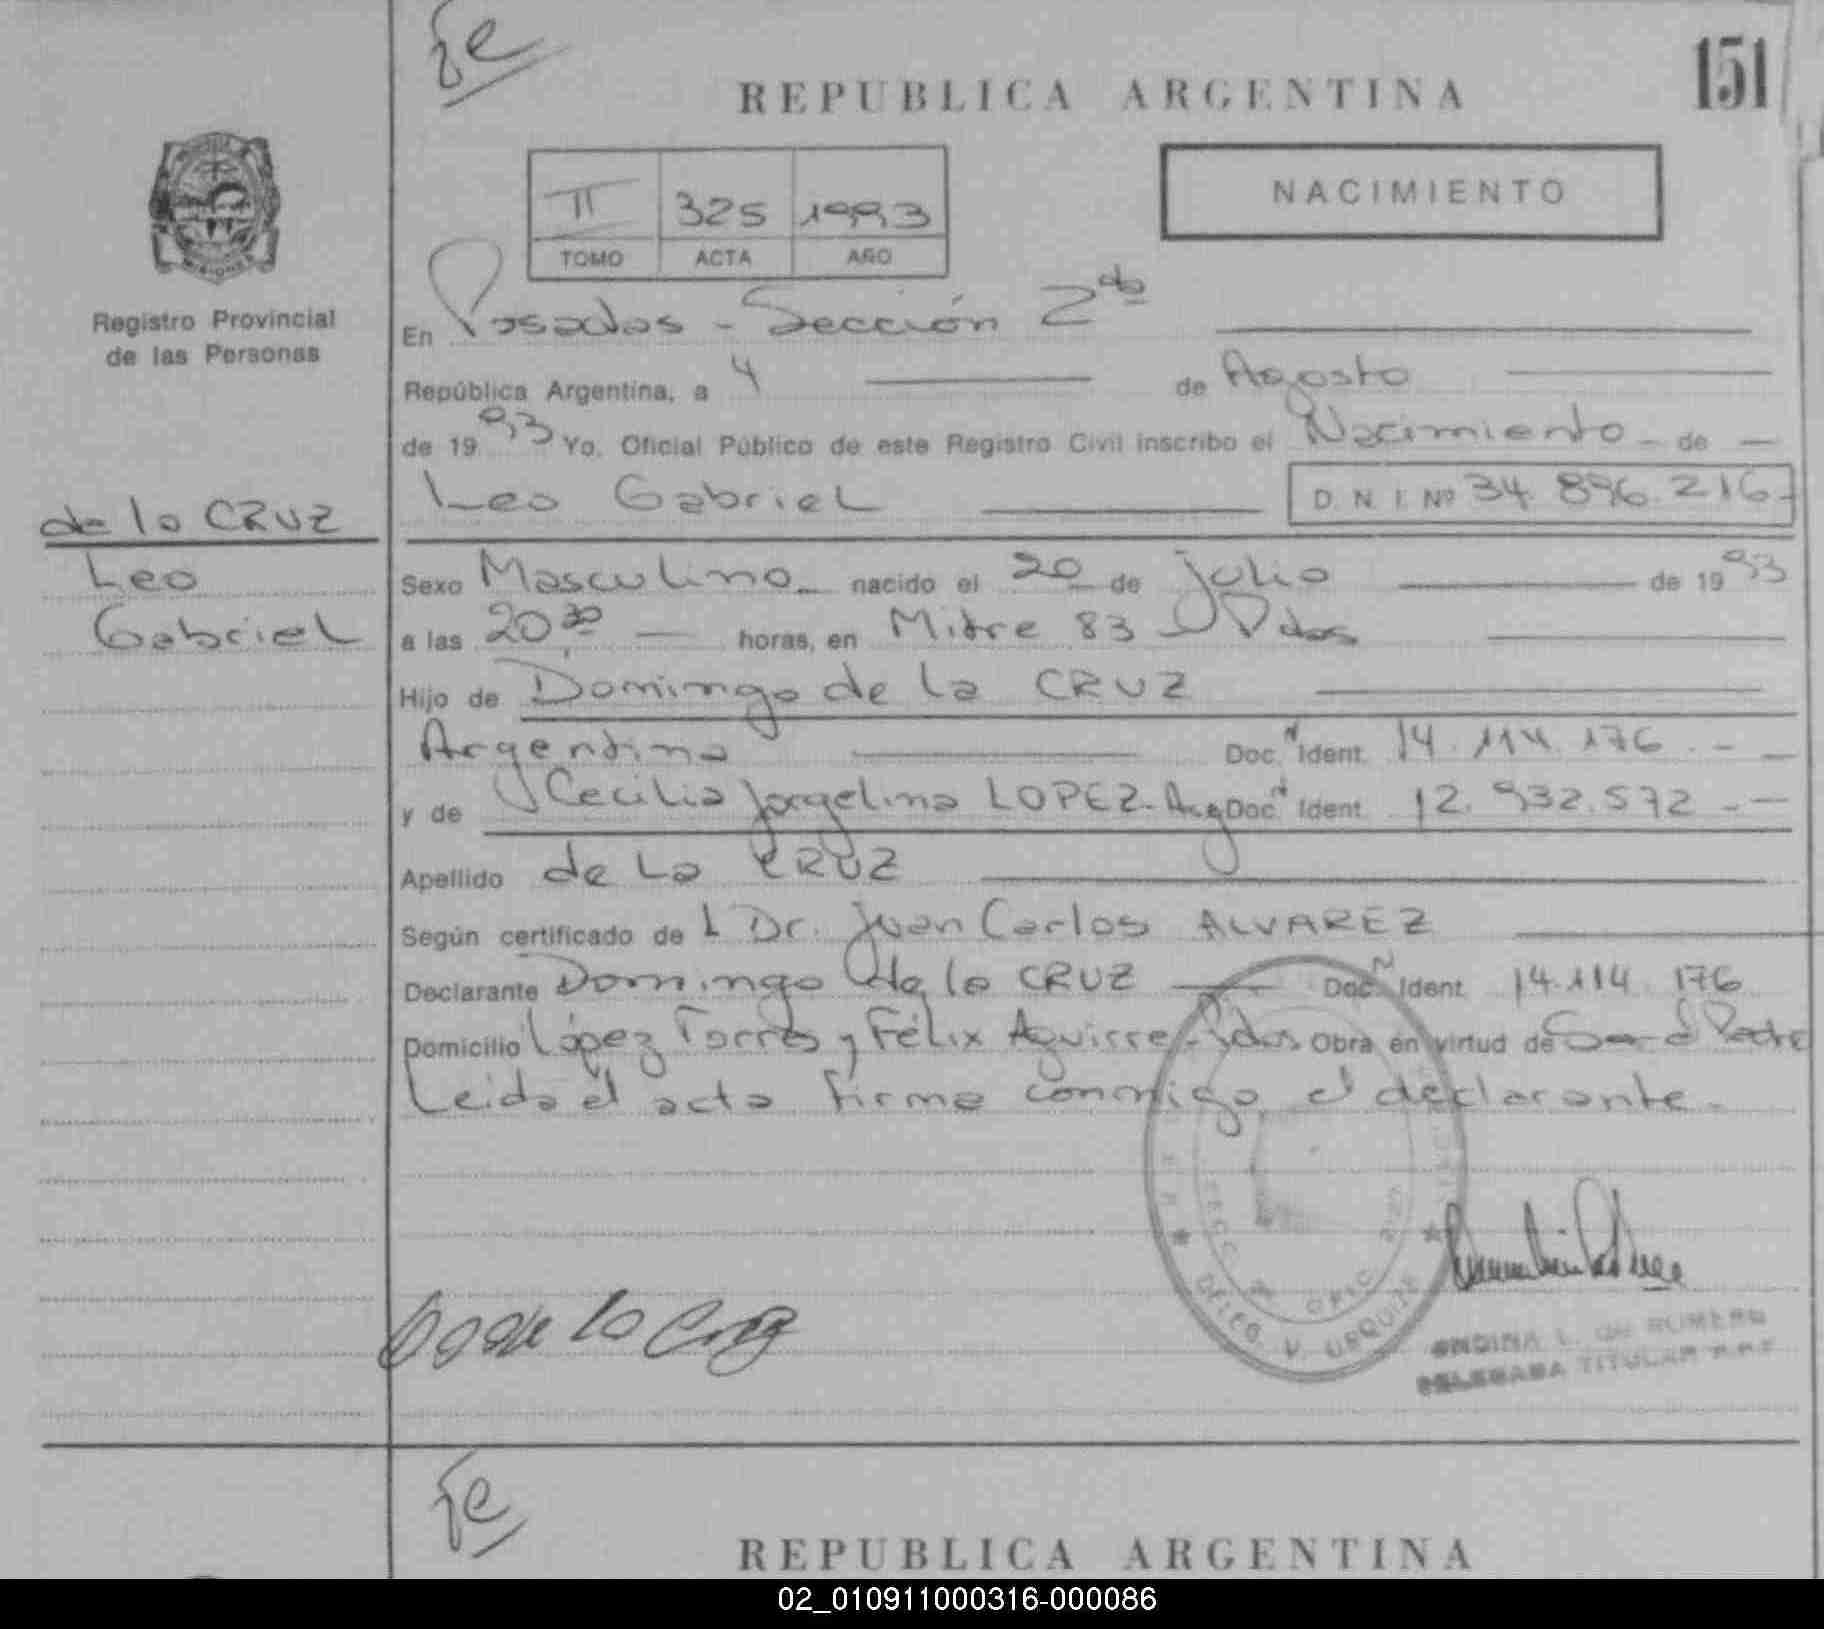 REPUBLICA ARGENTINA
151
II 325 1993
TOMO ACTA AÑO
NACIMIENTO
MISIONES
Registro Provincial
de las Personas
En Posadas - Sección 2da
República Argentina, a 4 de Agosto
de 1993 Yo, Oficial Público de este Registro Civil inscribo el Nacimiento - de
Leo Gabriel D. N. I. Nº 34.896.216-
de la CRUZ
Leo
Gabriel
Sexo Masculino nacido el 20 de julio de 1993
a las 20,30 horas, en Mitre 83 - Pdas
Hijo de Domingo de la CRUZ
Argentino Doc. N Ident. 14.114.176.-
y de Cecilia Jorgelina LOPEZ- Arg Doc. N Ident. 12.932.572.-
Apellido de La CRUZ
Según certificado de L Dr. Juan Carlos ALVAREZ
Declarante Domingo de la CRUZ Doc. N Ident. 14.114.176
Domicilio López Torres y Félix Aguirre - Pdas. Obra en virtud de Ser el Padre
Leida el acta firma conmigo el declarante.-
DELEG. V. URQUIZA
OFIC.
ONDINA L. DE ROMERO
DELEGADA TITULAR R.P.P
REPUBLICA ARGENTINA
02_010911000316-000086